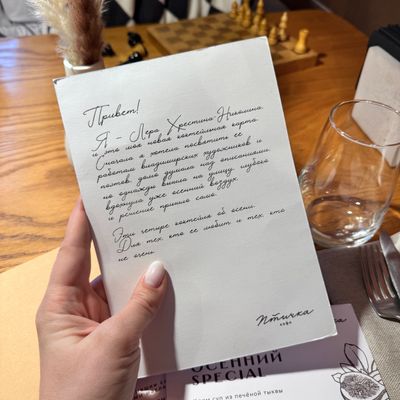 Привет!
Я - Лера Хрестина-Николина
и это моя новая коктейльная карта.
Сначала я хотела посвятить её
работам владимирских художников и
поэтов, долго думала над описаниями,
но однажды вышла на улицу, глубоко
вдохнула уже осенний воздух,
и решение пришло само.
Эти четыре коктейля об осени.
Для тех, кто её любит и тех, кто
не очень.
Птичка
кафе
ОСЕННИЙ
SPECIAL
суп из печёной тыквы